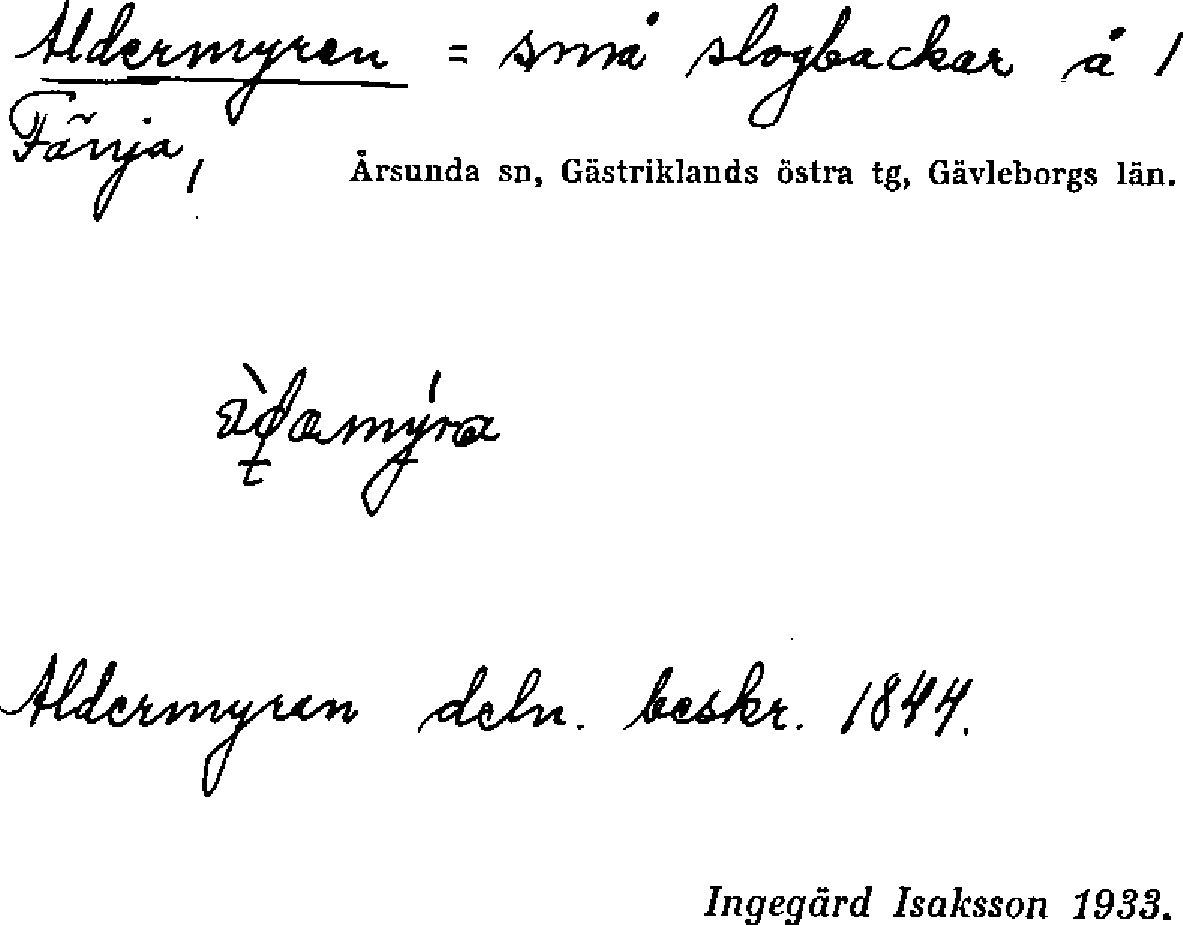 Aldermyren = små slogbackar å 1
Färja,
Årsunda sn, Gästriklands östra tg, Gävleborgs län.
Aldermyren deln. beskr. 1844.
Ingegärd Isaksson 1933.